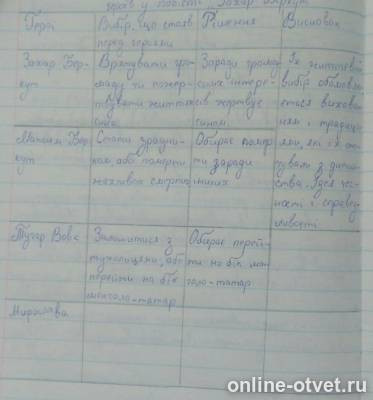 героїв у повісті "Захар Беркут"
Герої Вибір, що стояв перед героями Рішення Висновок
Захар Беркут
Врятувати громаду чи пожертвувати життям сина.
Заради громадських інтересів жертвує сином.
Їх життєвий вибір обумовлюється вихованням і традиціями, які їх оточували з дитинства. Ідея чесності і справедливості
Максим Беркут
Стати зрадником, або померти жахливою смертю
Обирає померти заради інших
Тугар Вовк
Залишитися з тухольцями, або перейти на бік монголо-татар
Обирає перейти на бік монголо-татар
Мирослава
online-otvet.ru